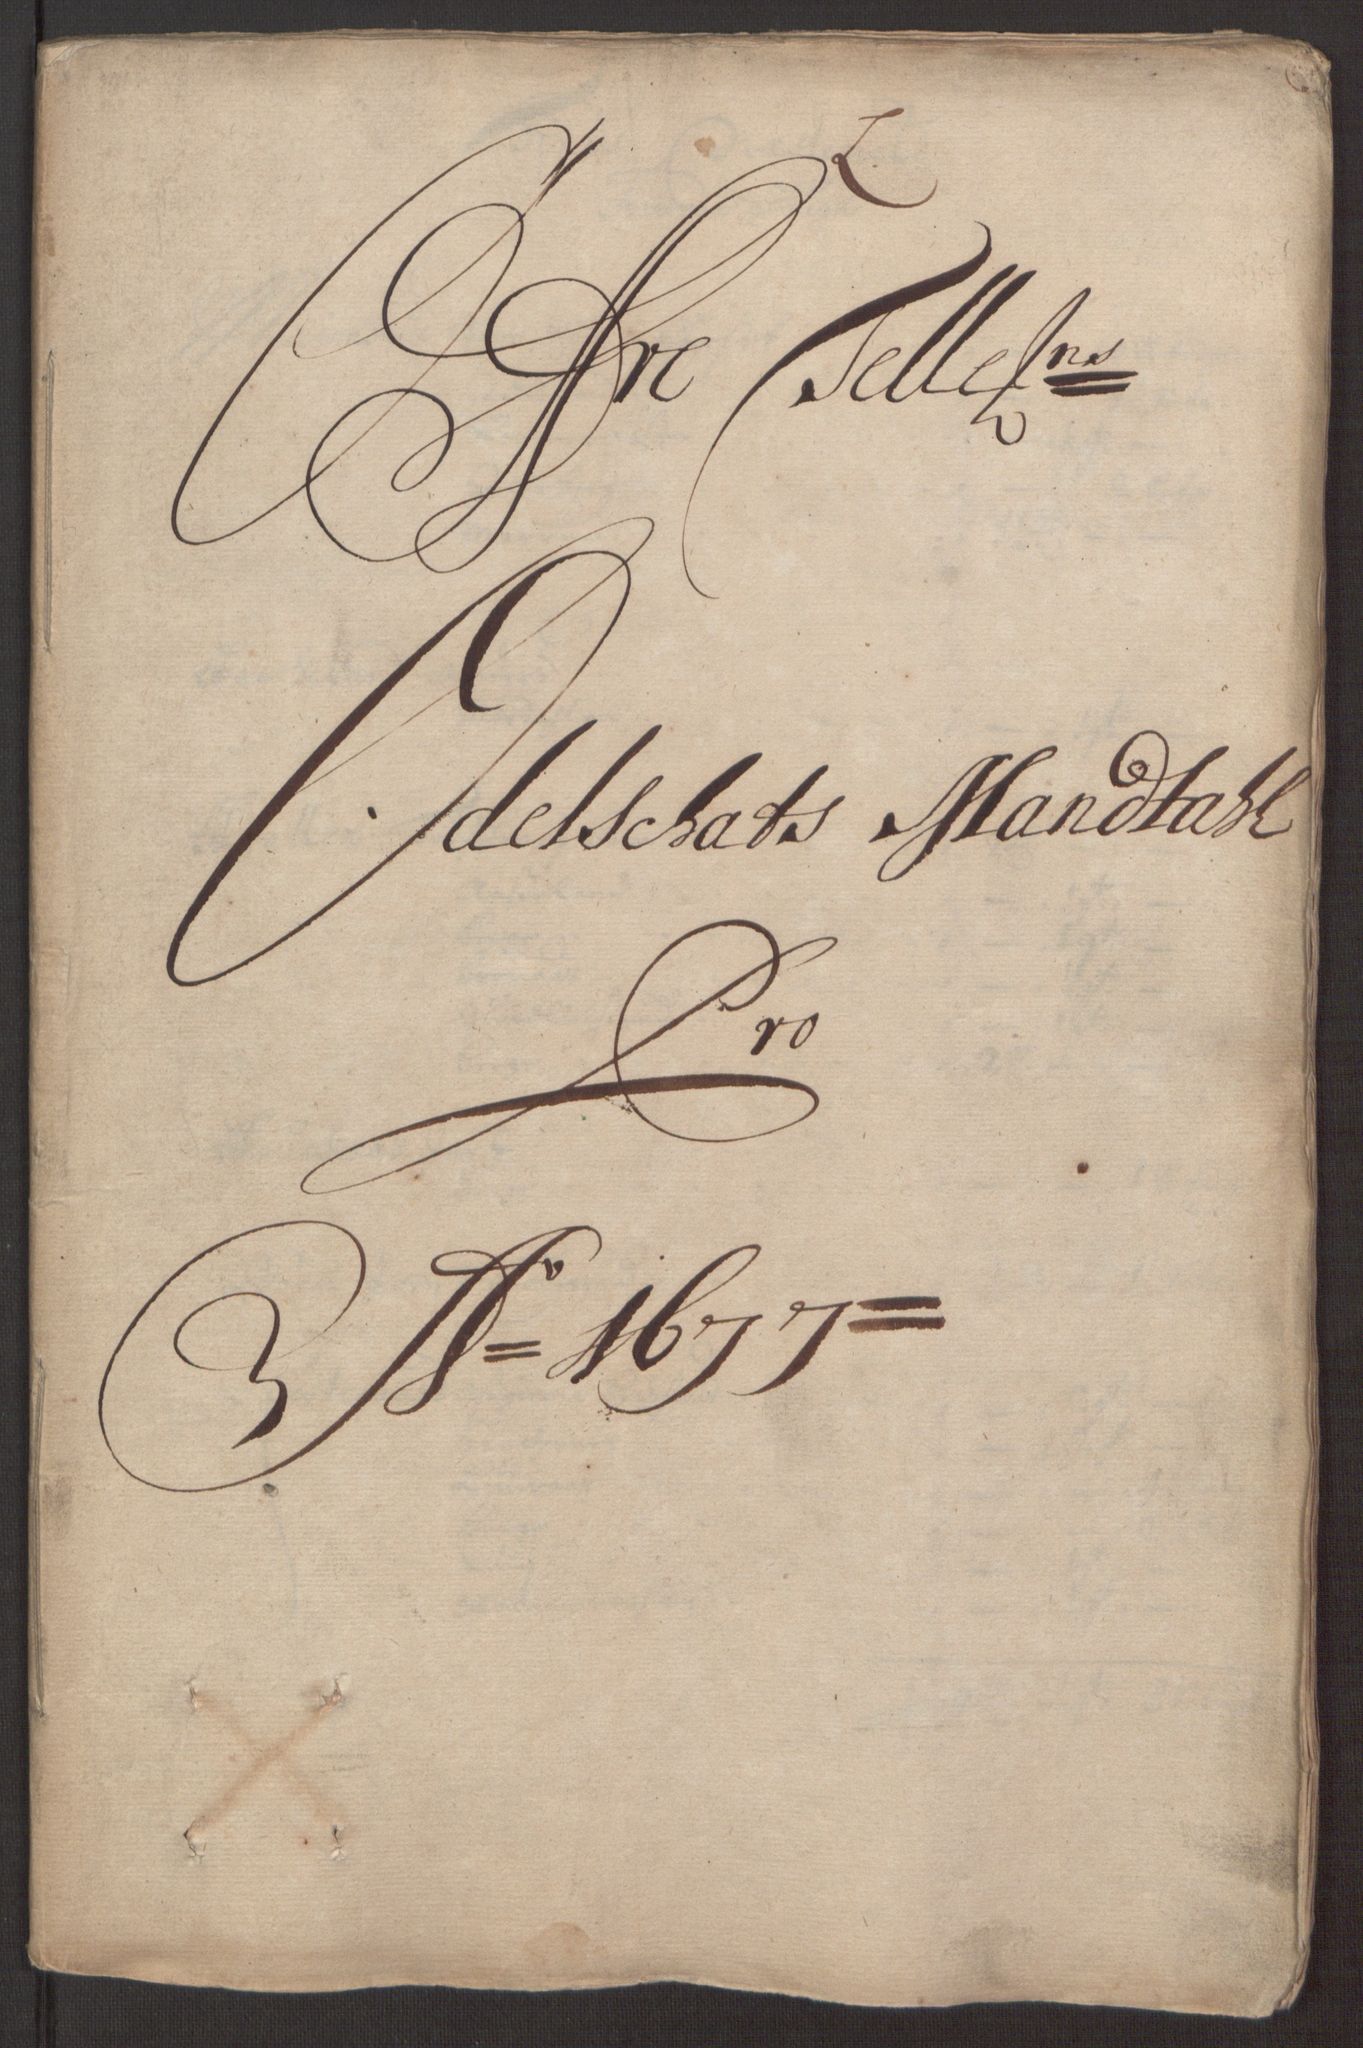 L.
Øfre Tellem:ns
Odelschats Mandtahl
Pro
Ao 1677